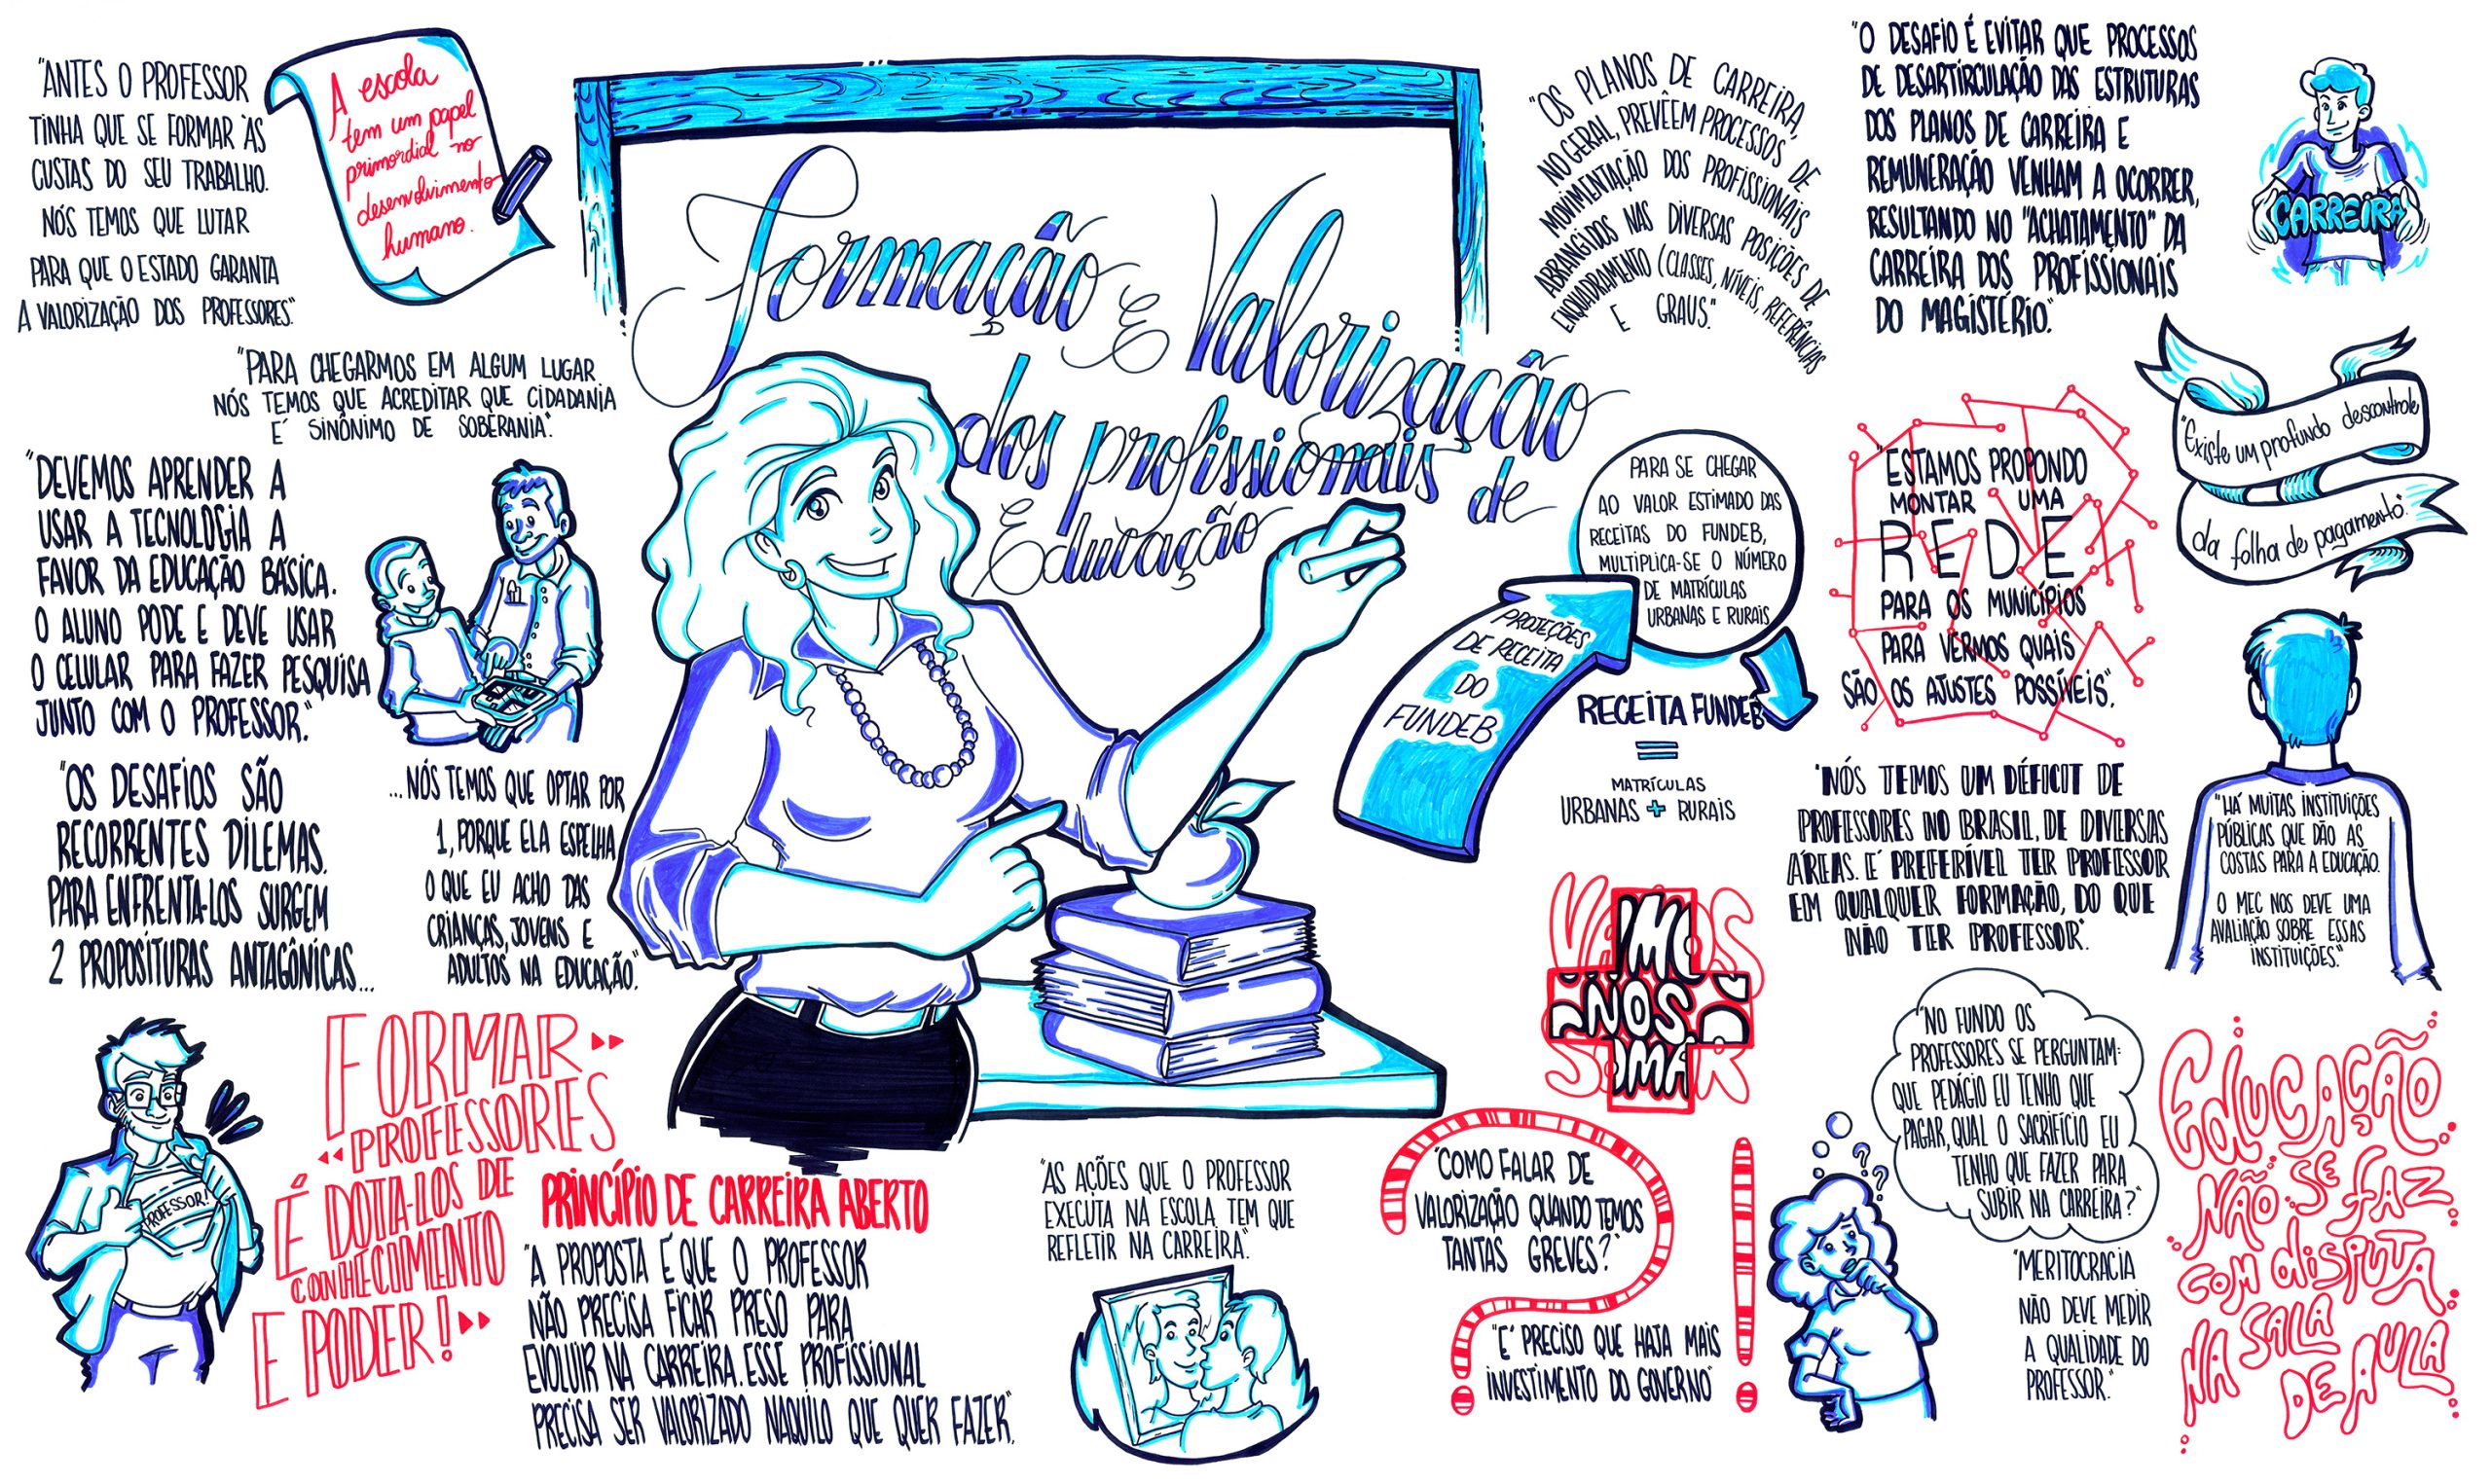 "ANTES O PROFESSOR
TINHA QUE SE FORMAR ÀS
CUSTAS DO SEU TRABALHO.
NÓS TEMOS QUE LUTAR
PARA QUE O ESTADO GARANTA
A VALORIZAÇÃO DOS PROFESSORES."
A escola
tem um papel
primordial no
desenvolvimento
humano.
"PARA CHEGARMOS EM ALGUM LUGAR
NÓS TEMOS QUE ACREDITAR QUE CIDADANIA
E' SINÔNIMO DE SOBERANIA".
"DEVEMOS APRENDER A
USAR A TECNOLOGIA A
FAVOR DA EDUCAÇÃO BÁSICA.
O ALUNO PODE E DEVE USAR
O CELULAR PARA FAZER PESQUISA
JUNTO COM O PROFESSOR."
"OS DESAFIOS SÃO
RECORRENTES DILEMAS.
PARA ENFRENTA-LOS SURGEM
2 PROPOSITURAS ANTAGÔNICAS...
...NÓS TEMOS QUE OPTAR POR
1, PORQUE ELA ESPELHA
O QUE EU ACHO DAS
CRIANÇAS, JOVENS E
ADULTOS NA EDUCAÇÃO."
Formação E Valorização
dos profissionais de
Educação
"OS PLANOS DE CARREIRA,
NO GERAL, PREVÊEM PROCESSOS DE
MOVIMENTAÇÃO DOS PROFISSIONAIS
ARRANGIDOS NAS DIVERSAS POSIÇÕES DE
ENQUADRAMENTO (CLASSES, NÍVEIS, REFERÊNCIAS
E GRAUS."
"O DESAFIO É EVITAR QUE PROCESSOS
DE DESARTIRCULAÇÃO DAS ESTRUTURAS
DOS PLANOS DE CARREIRA E
REMUNERAÇÃO VENHAM A OCORRER,
RESULTANDO NO "ACHATAMENTO" DA
CARREIRA DOS PROFISSIONAIS
DO MAGISTÉRIO."
CARREIRA
"Existe um profundo descontrole
da folha de pagamento."
PROJEÇÕES
DE RECEITA
DO
FUNDEB
PARA SE CHEGAR
AO VALOR ESTIMADO DAS
RECEITAS DO FUNDEB,
MULTIPLICA-SE O NÚMERO
DE MATRÍCULAS
URBANAS E RURAIS
RECEITA FUNDEB
=
MATRÍCULAS
URBANAS + RURAIS
"ESTAMOS PROPONDO
MONTAR UMA
REDE
PARA OS MUNICÍPIOS
PARA VERMOS QUAIS
SÃO OS AJUSTES POSSÍVEIS".
"NÓS TEMOS UM DÉFICIT DE
PROFESSORES NO BRASIL, DE DIVERSAS
ÁREAS. E' PREFERÍVEL TER PROFESSOR
EM QUALQUER FORMAÇÃO, DO QUE
NÃO TER PROFESSOR".
"HÁ MUITAS INSTITUIÇÕES
PÚBLICAS QUE DÃO AS
COSTAS PARA A EDUCAÇÃO.
O MEC NOS DEVE UMA
AVALIAÇÃO SOBRE ESSAS
INSTITUIÇÕES."
VAMOS
NOS
SOMAR
PROFESSOR!
FORMAR
PROFESSORES
É DOTA-LOS DE
CONHECIMENTO
E PODER!
PRINCÍPIO DE CARREIRA ABERTO
"A PROPOSTA É QUE O PROFESSOR
NÃO PRECISA FICAR PRESO PARA
EVOLUIR NA CARREIRA. ESSE PROFISSIONAL
PRECISA SER VALORIZADO NAQUILO QUE QUER FAZER."
"AS AÇÕES QUE O PROFESSOR
EXECUTA NA ESCOLA, TEM QUE
REFLETIR NA CARREIRA".
"COMO FALAR DE
VALORIZAÇÃO QUANDO TEMOS
TANTAS GREVES?"
"E' PRECISO QUE HAJA MAIS
INVESTIMENTO DO GOVERNO"
"NO FUNDO OS
PROFESSORES SE PERGUNTAM:
QUE PEDÁGIO EU TENHO QUE
PAGAR, QUAL O SACRIFÍCIO EU
TENHO QUE FAZER PARA
SUBIR NA CARREIRA?"
? ?
"MERITOCRACIA
NÃO DEVE MEDIR
A QUALIDADE DO
PROFESSOR."
EDUCAÇÃO
NÃO SE FAZ
COM DISPUTA
NA SALA
DE AULA